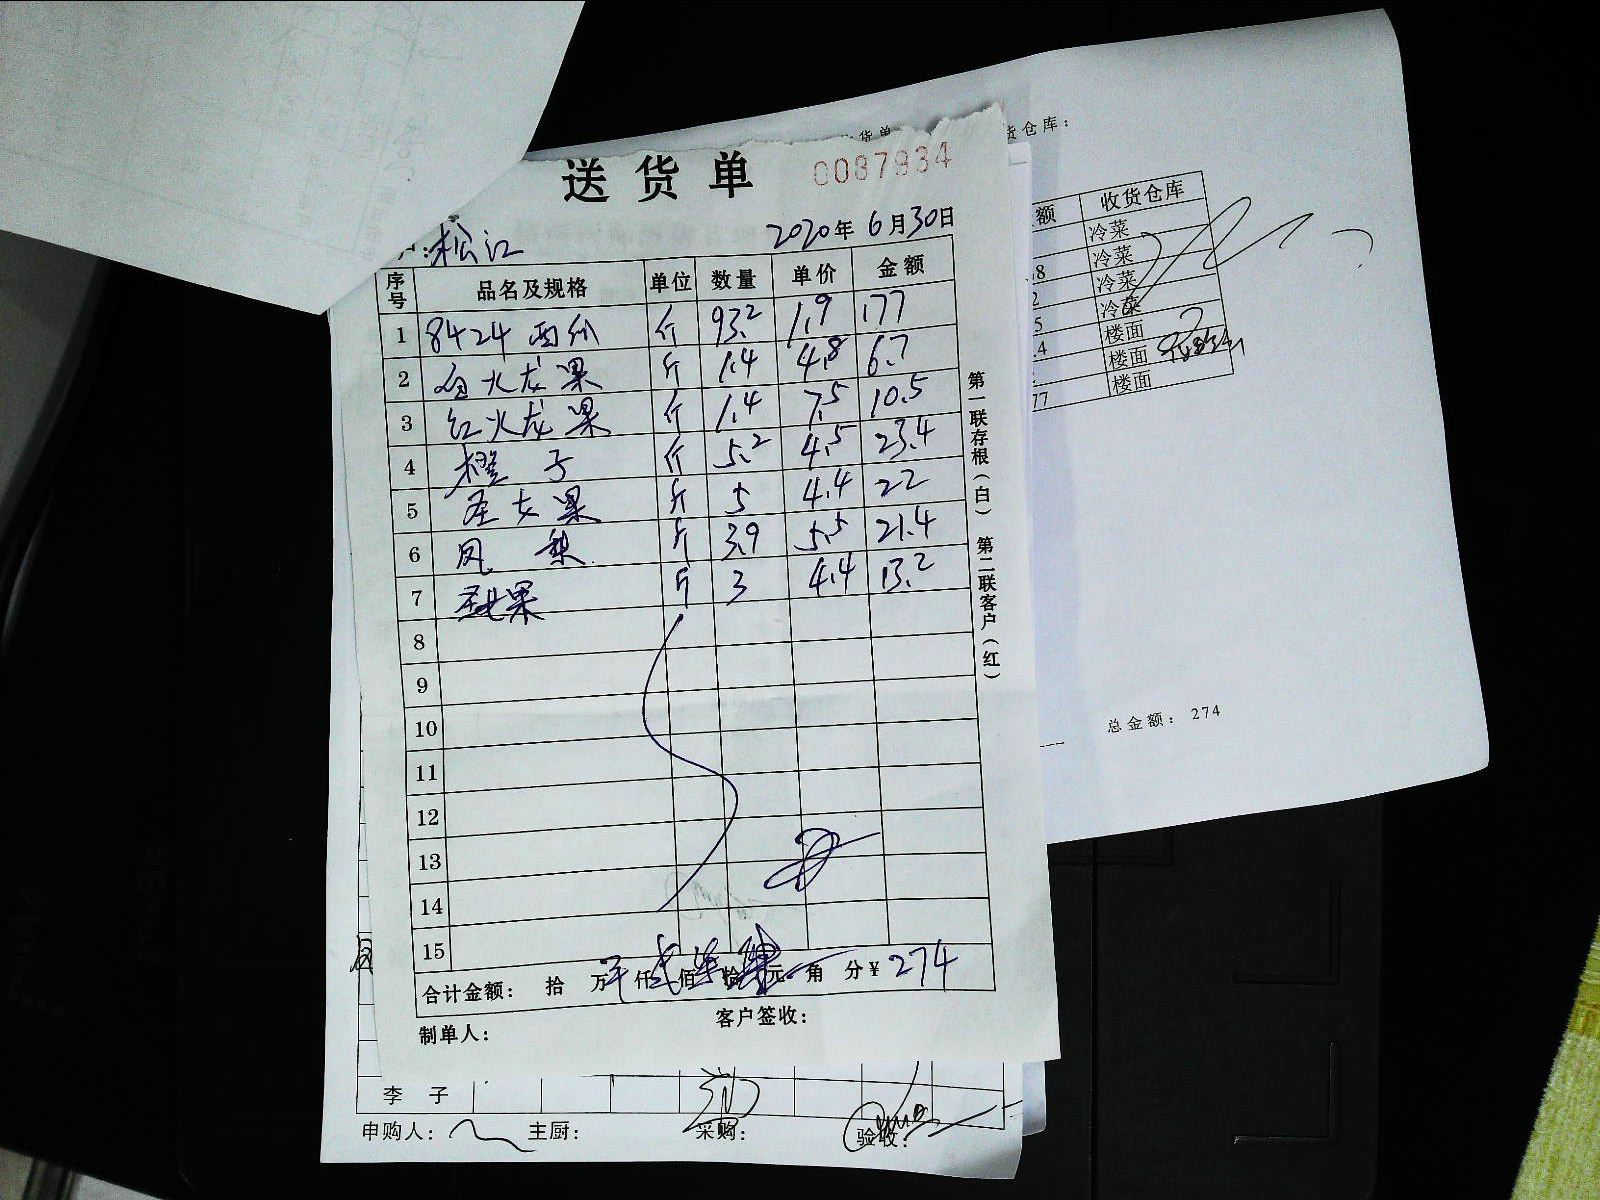 送货单 0087934
松江 2020年6月30日
序号 品名及规格 单位 数量 单价 金额
1 8424西瓜 斤 93.2 1.9 177
2 白火龙果 斤 1.4 4.8 6.7
3 红火龙果 斤 1.4 7.5 10.5
4 橙子 斤 5.2 4.5 23.4
5 圣女果 斤 5 4.4 22
6 凤梨 斤 3.9 5.5 21.4
7 圣女果 斤 3 4.4 13.2
8
9
10
11
12
13
14
15
合计金额: 拾 万 仟 贰 佰 柒 拾 肆 元 角 分 ¥274
制单人: 客户签收:
第一联存根(白) 第二联客户(红)
货单 货仓库:
额 收货仓库
冷菜
8 冷菜
2 冷菜
5 冷菜
.4 楼面
楼面
77 楼面
总金额: 274
李子
申购人: 主厨: 采购: 验收: